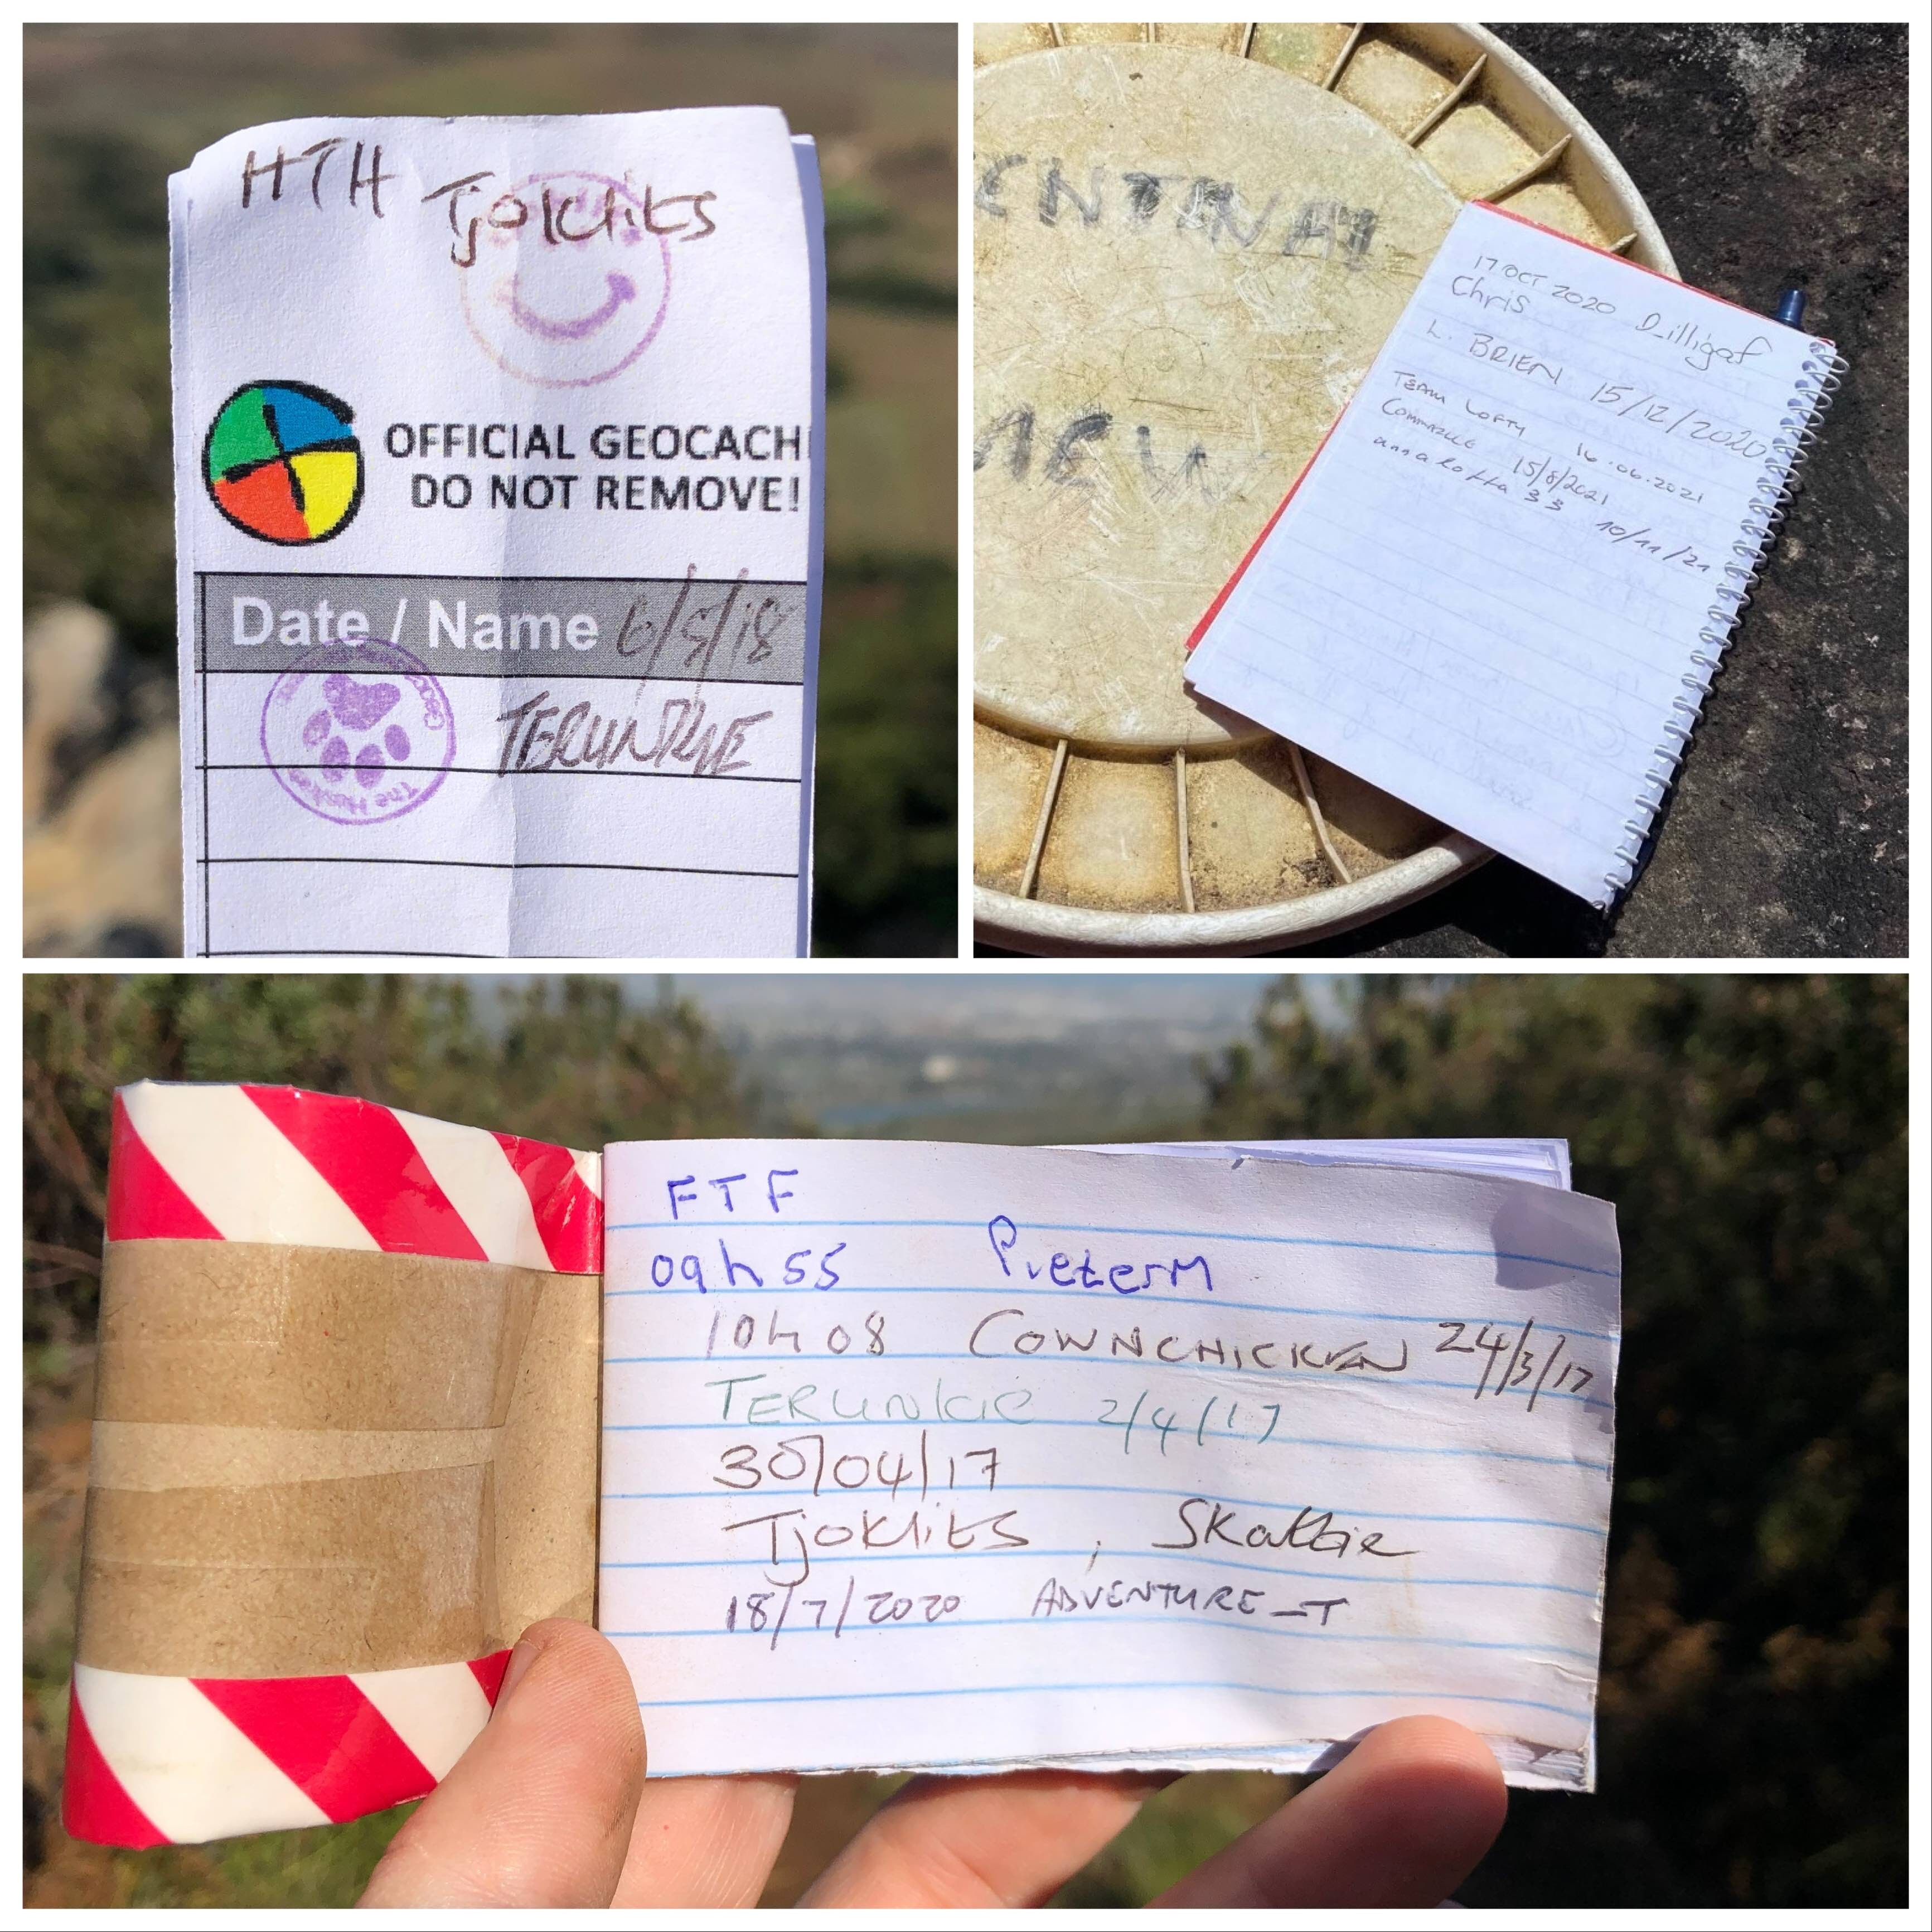 HTH Tjoklits
OFFICIAL GEOCACH
DO NOT REMOVE!
Date / Name 6/5/18
TERUNKIE
The Husky
ENTINAL
17 OCT 2020 D_illigaf
Chris
L. BRIEN 15/12/2020
TEAM LOFTY 16.06.2021
15/8/2021
annalotta33 10/11/21
FTF
09h55 PieterM
10h08 COWNCHICKEN 24/3/17
TERUNKIE 2/4/17
30/04/17
Tjoklits, Skattie
18/7/2020 ADVENTURE_T